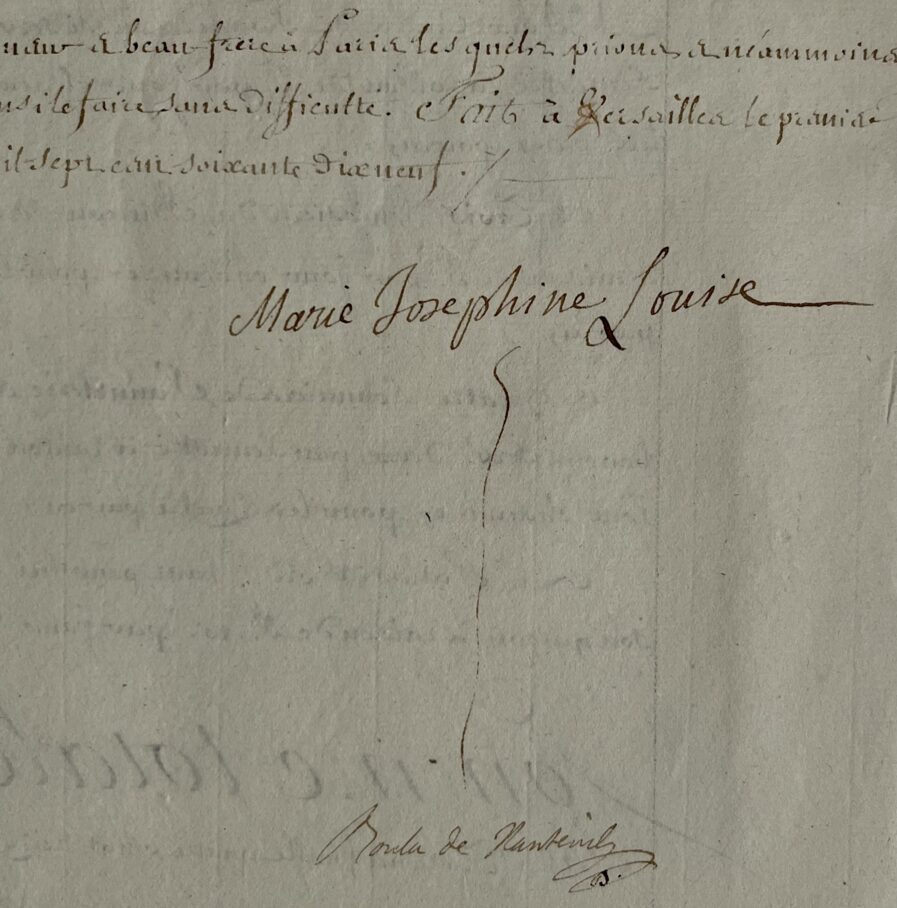 neur & beau frere à Paris lesquels prions & néammoins
nsi le faire sans difficulté. Fait à Versailles le premier
il sept cent soixante dix neuf.
Marie Josephine Louise
de Nanteuil